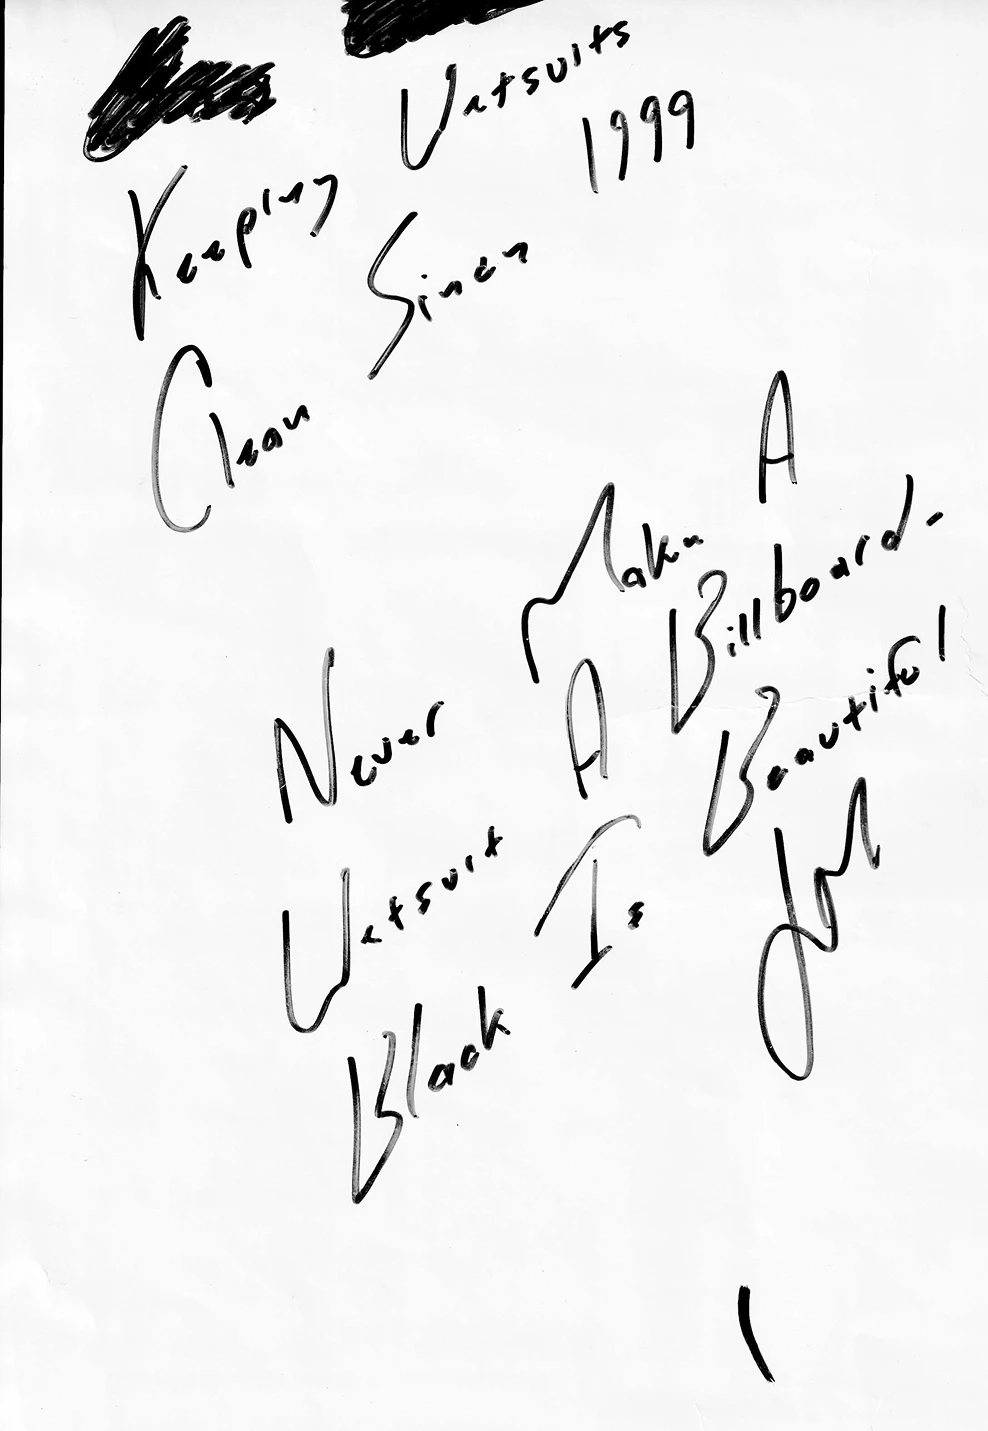 Keeping Wetsuits
Clean Since 1999
Never Make A
Wetsuit A Billboard-
Black Is Beautiful